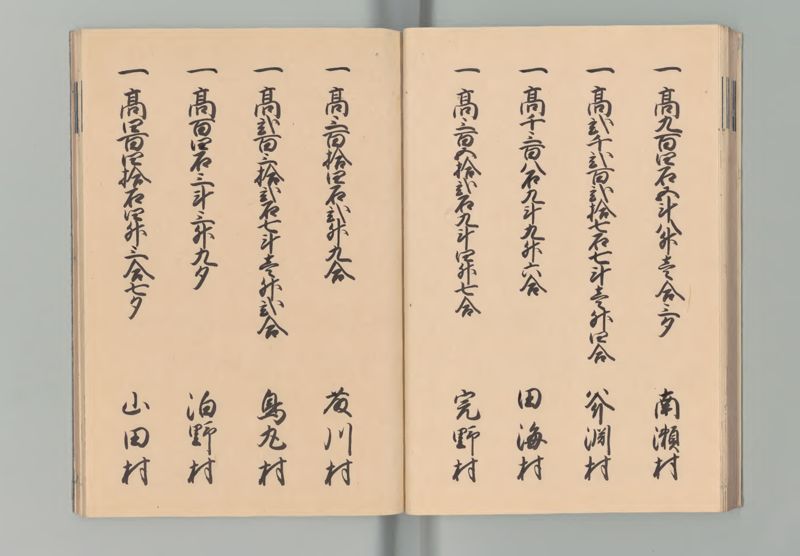 一 高九百四石五斗八升壱合三夕 南瀬村
一 高弐千弐百弐拾七石七斗壱升四合 斧渕村
一 高千三百八石九斗九升六合 田海村
一 高三百五拾弐石九斗四升七合 宍野村
一 高三百拾四石弐升九合 藤川村
一 高弐百三拾弐石七斗壱升弐合 鳥丸村
一 高百四石三斗三升九夕 泊野村
一 高四百四拾石四升三合七夕 山田村